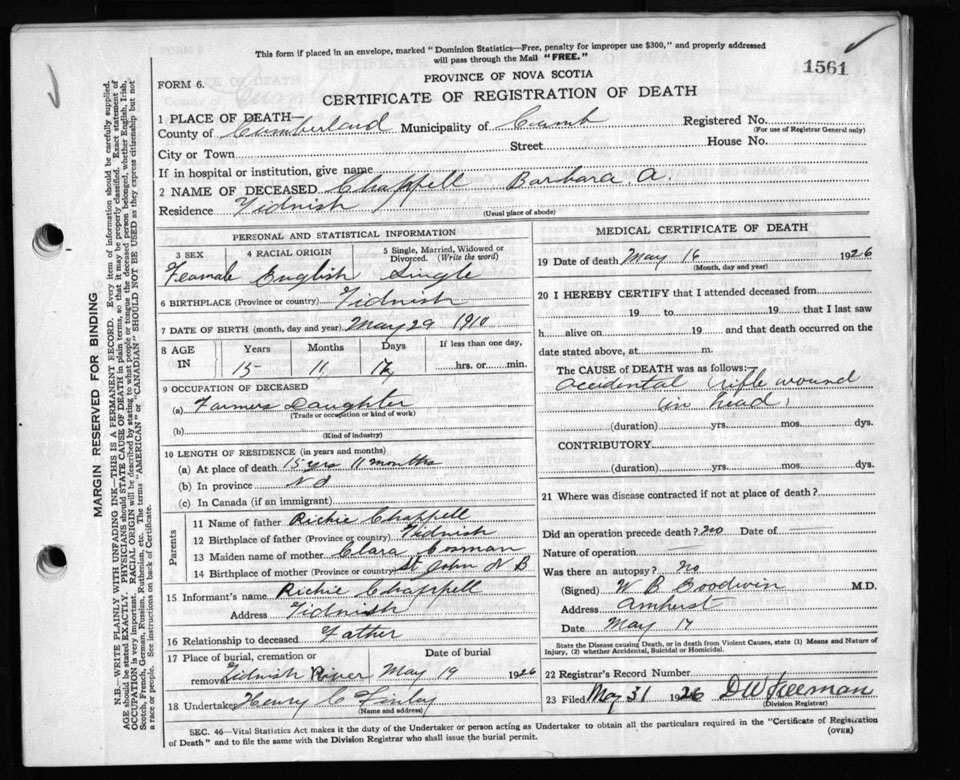 This form if placed in an envelope, marked "Dominion Statistics—Free, penalty for improper use $300," and properly addressed
will pass through the Mail "FREE."
1561
PROVINCE OF NOVA SCOTIA
FORM 6.
CERTIFICATE OF REGISTRATION OF DEATH
1 PLACE OF DEATH—
County of Cumberland Municipality of Cumb Registered No.
(For use of Registrar General only)
City or Town Street House No.
If in hospital or institution, give name
2 NAME OF DECEASED Chappell Barbara. A.
Residence Tidnish
(Usual place of abode)
PERSONAL AND STATISTICAL INFORMATION
3 SEX 4 RACIAL ORIGIN 5 Single, Married, Widowed or Divorced. (Write the word)
Feamale English Single
6 BIRTHPLACE (Province or country) Tidnish
7 DATE OF BIRTH (month, day and year) May 29 1910
8 AGE IN Years Months Days If less than one day,
15 11 17 hrs. or min.
9 OCCUPATION OF DECEASED
(a) Farmers Daughter
(Trade or occupation or kind of work)
(b)
(Kind of industry)
10 LENGTH OF RESIDENCE (in years and months)
(a) At place of death 15 yrs 11 months
(b) In province
(c) In Canada (if an immigrant)
Parents
11 Name of father Richie Chappell
12 Birthplace of father (Province or country) Tidnish
13 Maiden name of mother Clara
14 Birthplace of mother (Province or country) St John N B
15 Informant's name Richie Chappell
Address Tidnish
16 Relationship to deceased Father
17 Place of burial, cremation or removal Date of burial
Tidnish River May 19 1926
18 Undertaker Henry C Finley
(Name and address)
MEDICAL CERTIFICATE OF DEATH
19 Date of death May 16 1926
(Month, day and year)
20 I HEREBY CERTIFY that I attended deceased from
19 to 19 that I last saw
h alive on 19 and that death occurred on the
date stated above, at m.
The CAUSE of DEATH was as follows:—
accidental rifle wound
(in head)
(duration) yrs. mos. dys.
CONTRIBUTORY.
(duration) yrs. mos. dys.
21 Where was disease contracted if not at place of death?
Did an operation precede death? no Date of
Nature of operation
Was there an autopsy? no
(Signed) W B Goodwin M.D.
Address Amherst
Date May 17
State the Disease causing Death, or in death from Violent Causes, state (1) Means and Nature of
Injury, (2) whether Accidental, Suicidal or Homicidal.
22 Registrar's Record Number
23 Filed May 31 1926 D W Freeman
(Division Registrar)
SEC. 46—Vital Statistics Act makes it the duty of the Undertaker or person acting as Undertaker to obtain all the particulars required in the "Certificate of Registration
of Death" and to file the same with the Division Registrar who shall issue the burial permit.
(OVER)
MARGIN RESERVED FOR BINDING
N.B.—WRITE PLAINLY WITH UNFADING INK—THIS IS A PERMANENT RECORD. Every item of information should be carefully supplied.
AGE should be stated EXACTLY. PHYSICIANS should STATE CAUSE OF DEATH in plain terms, so that it may be properly classified. Exact statement of
OCCUPATION is very important. RACIAL ORIGIN will be described by stating to what people or tongue the deceased person belonged, whether English, Irish,
Scotch, French, German, Russian, Ruthenian, etc. The terms "AMERICAN" or "CANADIAN" SHOULD NOT BE USED as they express citizenship but not
a race or people. See instructions on back of Certificate.